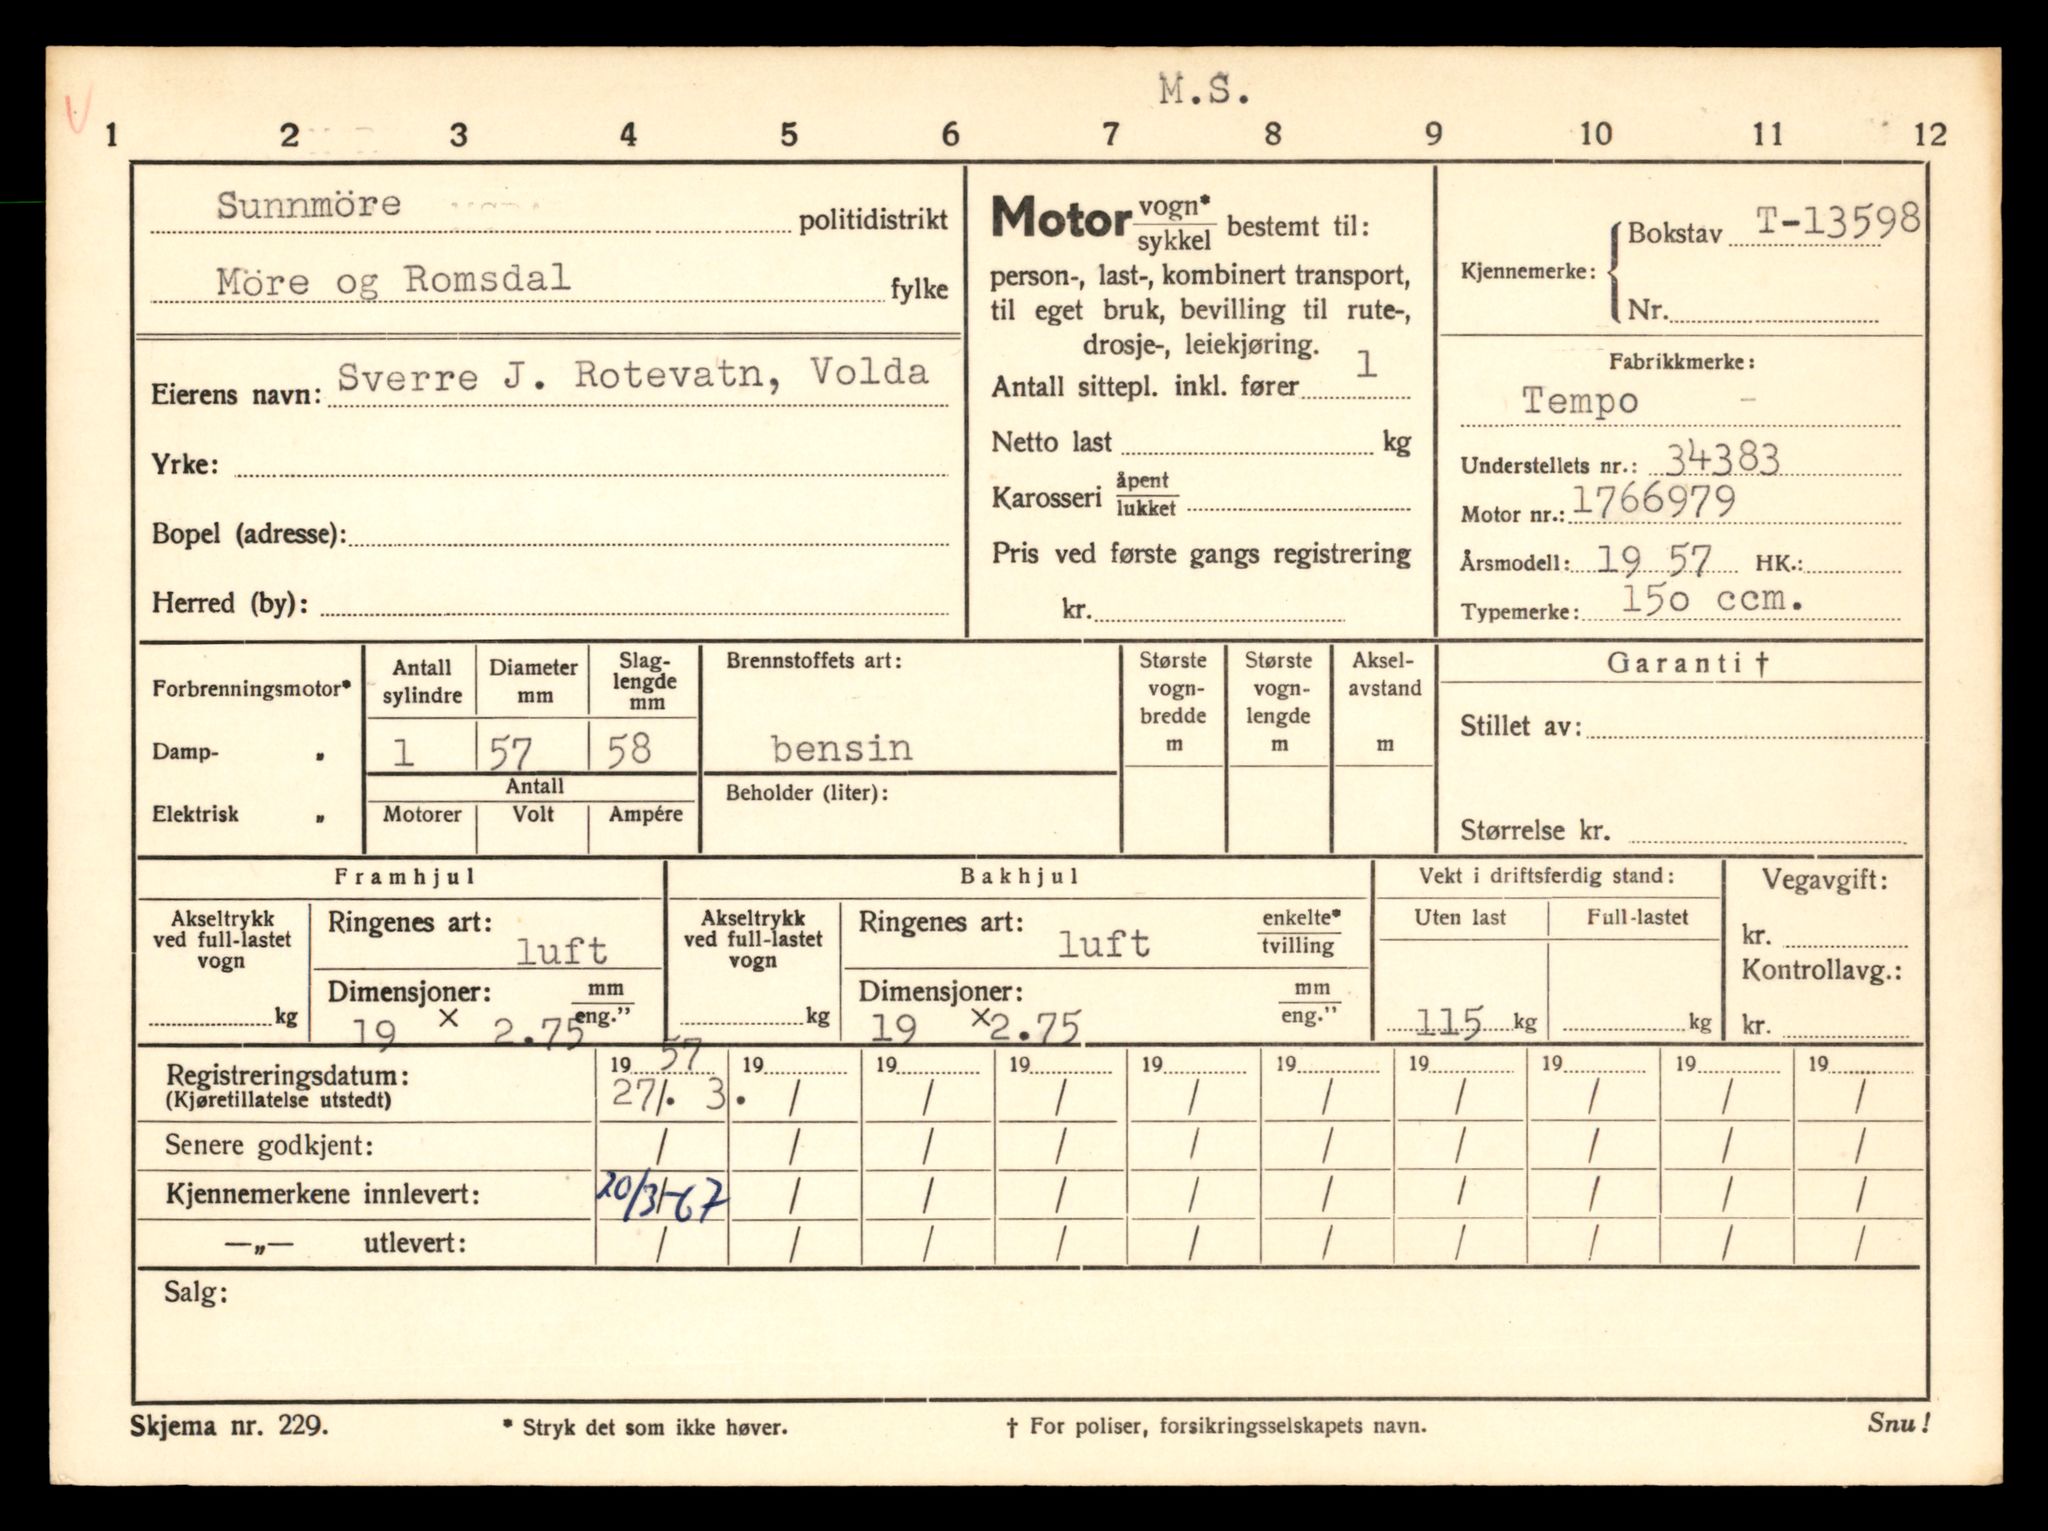 M.S.
1 2 3 4 5 6 7 8 9 10 11 12
Sunnmöre politidistrikt
Möre og Romsdal fylke
Eierens navn: Sverre J. Rotevatn, Volda
Yrke:
Bopel (adresse):
Herred (by):
Motor vogn* / sykkel bestemt til:
person-, last-, kombinert transport,
til eget bruk, bevilling til rute-,
drosje-, leiekjøring.
Antall sittepl. inkl. fører 1
Netto last kg
Karosseri åpent / lukket
Pris ved første gangs registrering
kr.
Kjennemerke: { Bokstav T-13598
Nr.
Fabrikkmerke:
Tempo -
Understellets nr.: 34383
Motor nr.: 1766979
Årsmodell: 19 57 HK.:
Typemerke: 150 ccm.
Forbrenningsmotor*
Damp- „
Elektrisk „
Antall sylindre
Diameter mm
Slag-lengde mm
1 57 58
Antall
Motorer Volt Ampére
Brennstoffets art:
bensin
Beholder (liter):
Største vogn-bredde m
Største vogn-lengde m
Aksel-avstand m
Garanti †
Stillet av:
Størrelse kr.
Framhjul
Akseltrykk
ved full-lastet
vogn
kg
Ringenes art:
luft
Dimensjoner: mm / eng."
19 × 2.75
Bakhjul
Akseltrykk
ved full-lastet
vogn
kg
Ringenes art: enkelte* / tvilling
luft
Dimensjoner: mm / eng."
19 × 2.75
Vekt i driftsferdig stand:
Uten last Full-lastet
115 kg kg
Vegavgift:
kr.
Kontrollavg.:
kr.
Registreringsdatum: 19 57 19 19 19 19 19 19 19 19 19
(Kjøretillatelse utstedt) 27/. 3. / / / / / / / / /
Senere godkjent: / / / / / / / / / /
Kjennemerkene innlevert: 20/3-67 / / / / / / / / /
—„— utlevert: / / / / / / / / / /
Salg:
Skjema nr. 229. * Stryk det som ikke høver. † For poliser, forsikringsselskapets navn. Snu!